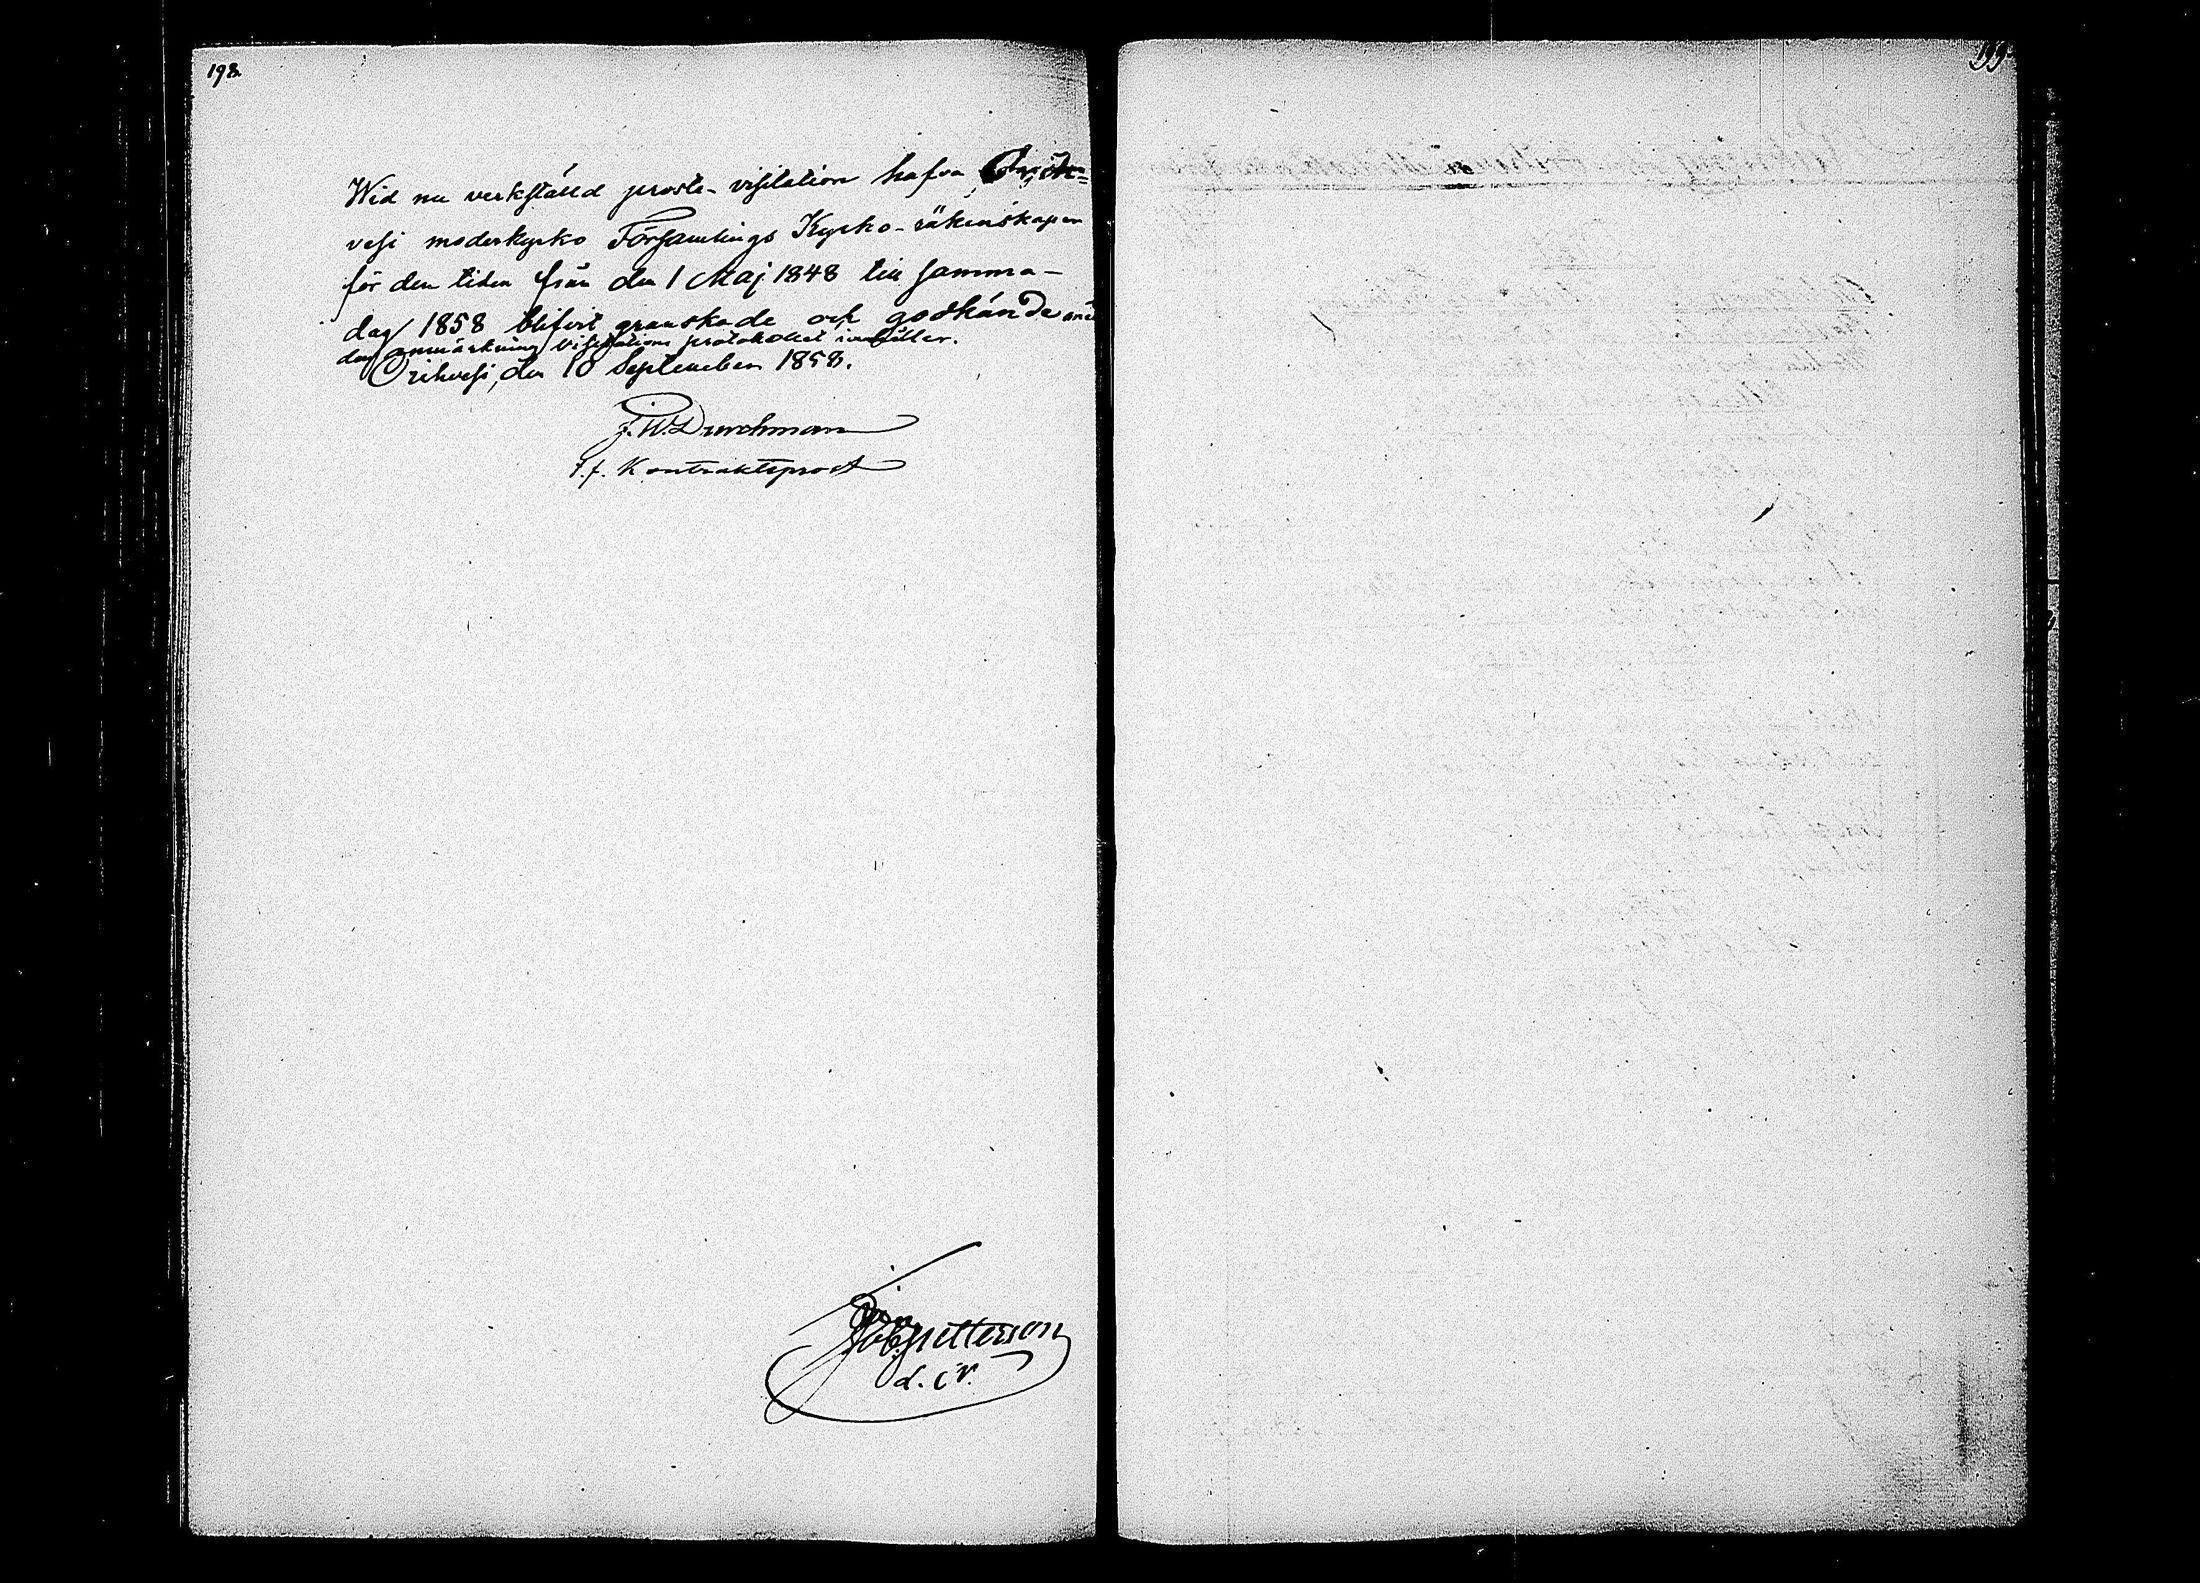 198.
Wid nu verkställd proste-visitation hafva Orih=
vesi moderkyrko Församlings Kyrko-räkenskaper
för den tiden från den 1 Maj 1848 till samma-
dag 1858 blifvit granskade och godkände med
den anmärkning visitations protokollet innehåller.
Orihvesi, den 10 September 1858.
J. W. Durchman
t.f. Kontraktsprost
Petterson
199.